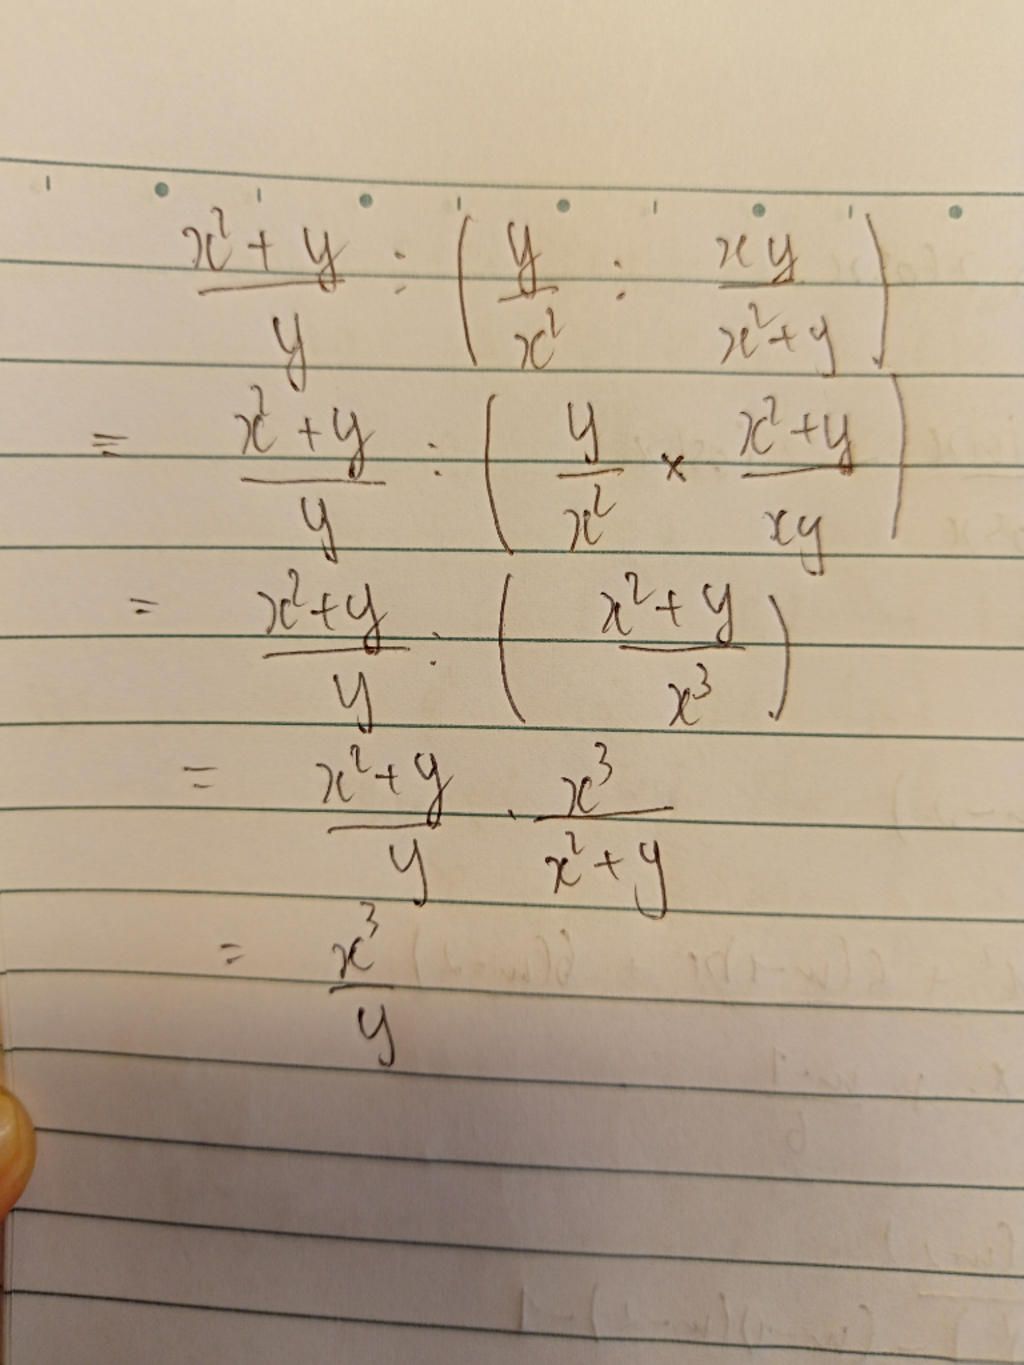 (x² + y)/y : (y/x² : xy/(x² + y))
= (x² + y)/y : (y/x² × (x² + y)/xy)
= (x² + y)/y : ((x² + y)/x³)
= (x² + y)/y · x³/(x² + y)
= x³/y